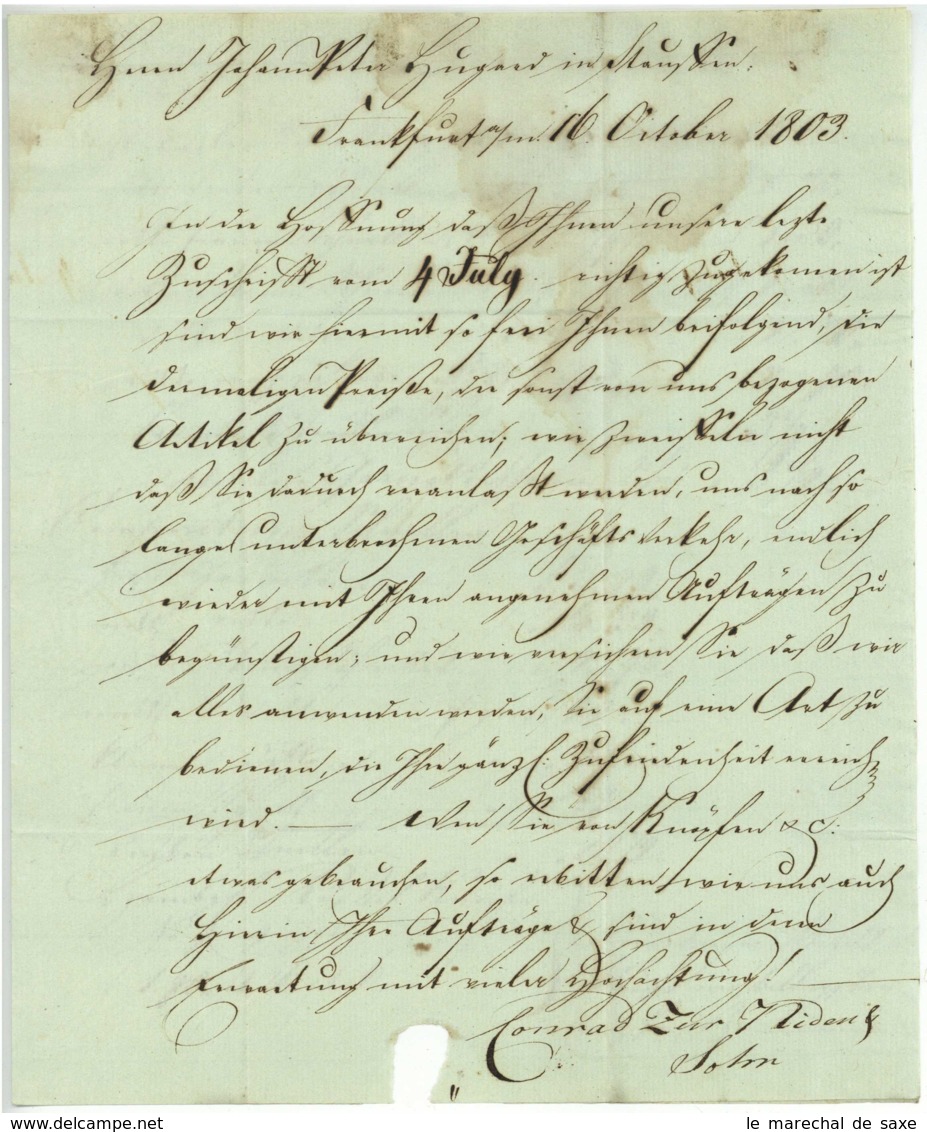 Herrn Johann Peter Hugard in Stauffen.
Frankfurt a/m. 16. October 1803.
In der Hoffnung daß Ihnen unsere lezte
Zuschrifft vom 4 July. richtig zugekomen ist
sind wir hiermit so frei Ihnen beifolgend, die
dermaligen Preiße, der sonst von uns bezogenen
Artikel zu überreichen; wir zweiffeln nicht
daß Sie dadurch veranlaßt werden, uns nach so
lange unterbrochenen Geschäfts Verkehr, endlich
wieder mit Ihren angenehmen Aufträgen zu
begünstigen; und wir versichern Sie daß wir
alles anwenden werden, Sie auf eine Art zu
bedienen, die Ihre gänzl: Zufriedenheit erreichen
wird. — Wen Sie von Knöpfen &c:
etwas gebrauchen, so erbitten wir uns auch
hierin Ihre Aufträge & sind in deren
Erwartung mit vieler Hochachtung!
Conrad Zur Niden &
Sohn
le marechal de saxe